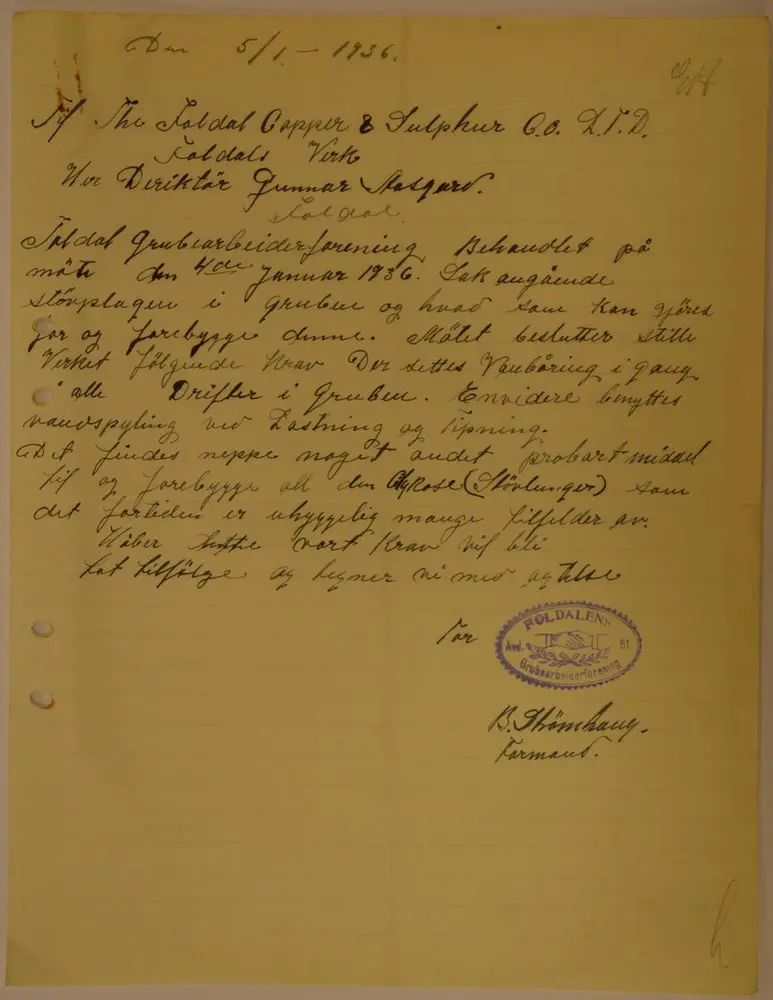 Den 5/1 – 1936.
Til The Foldal Copper & Sulphur C.o. L.T.D.
Foldals Verk
Her Deriktör Gunnar Aasgard.
Foldal.
Foldal Grubearbeiderforening Behandlet på
möte den 4de Januar 1936. Sak angående
stövplagen i gruben og hvad som kan gjöres
for og forebygge denne. Mötet beslutter stille
Verket fölgende krav Der settes Vanboring i gang
i alle Drifter i Gruben. Envidere benyttes
vandspyling ved Lastning og Tipning.
Det findes neppe noget andet probart middel
til og forebygge all den (Stövlunger) som
det fortiden er uhyggelig mange tilfelder av.
Håber dette vort Krav vil bli
tat tilfölge og tegner vi med agtelse
For
FOLDALENS
Avd. 61
Grubearbeiderforening
B. Strömhaug.
Formand.